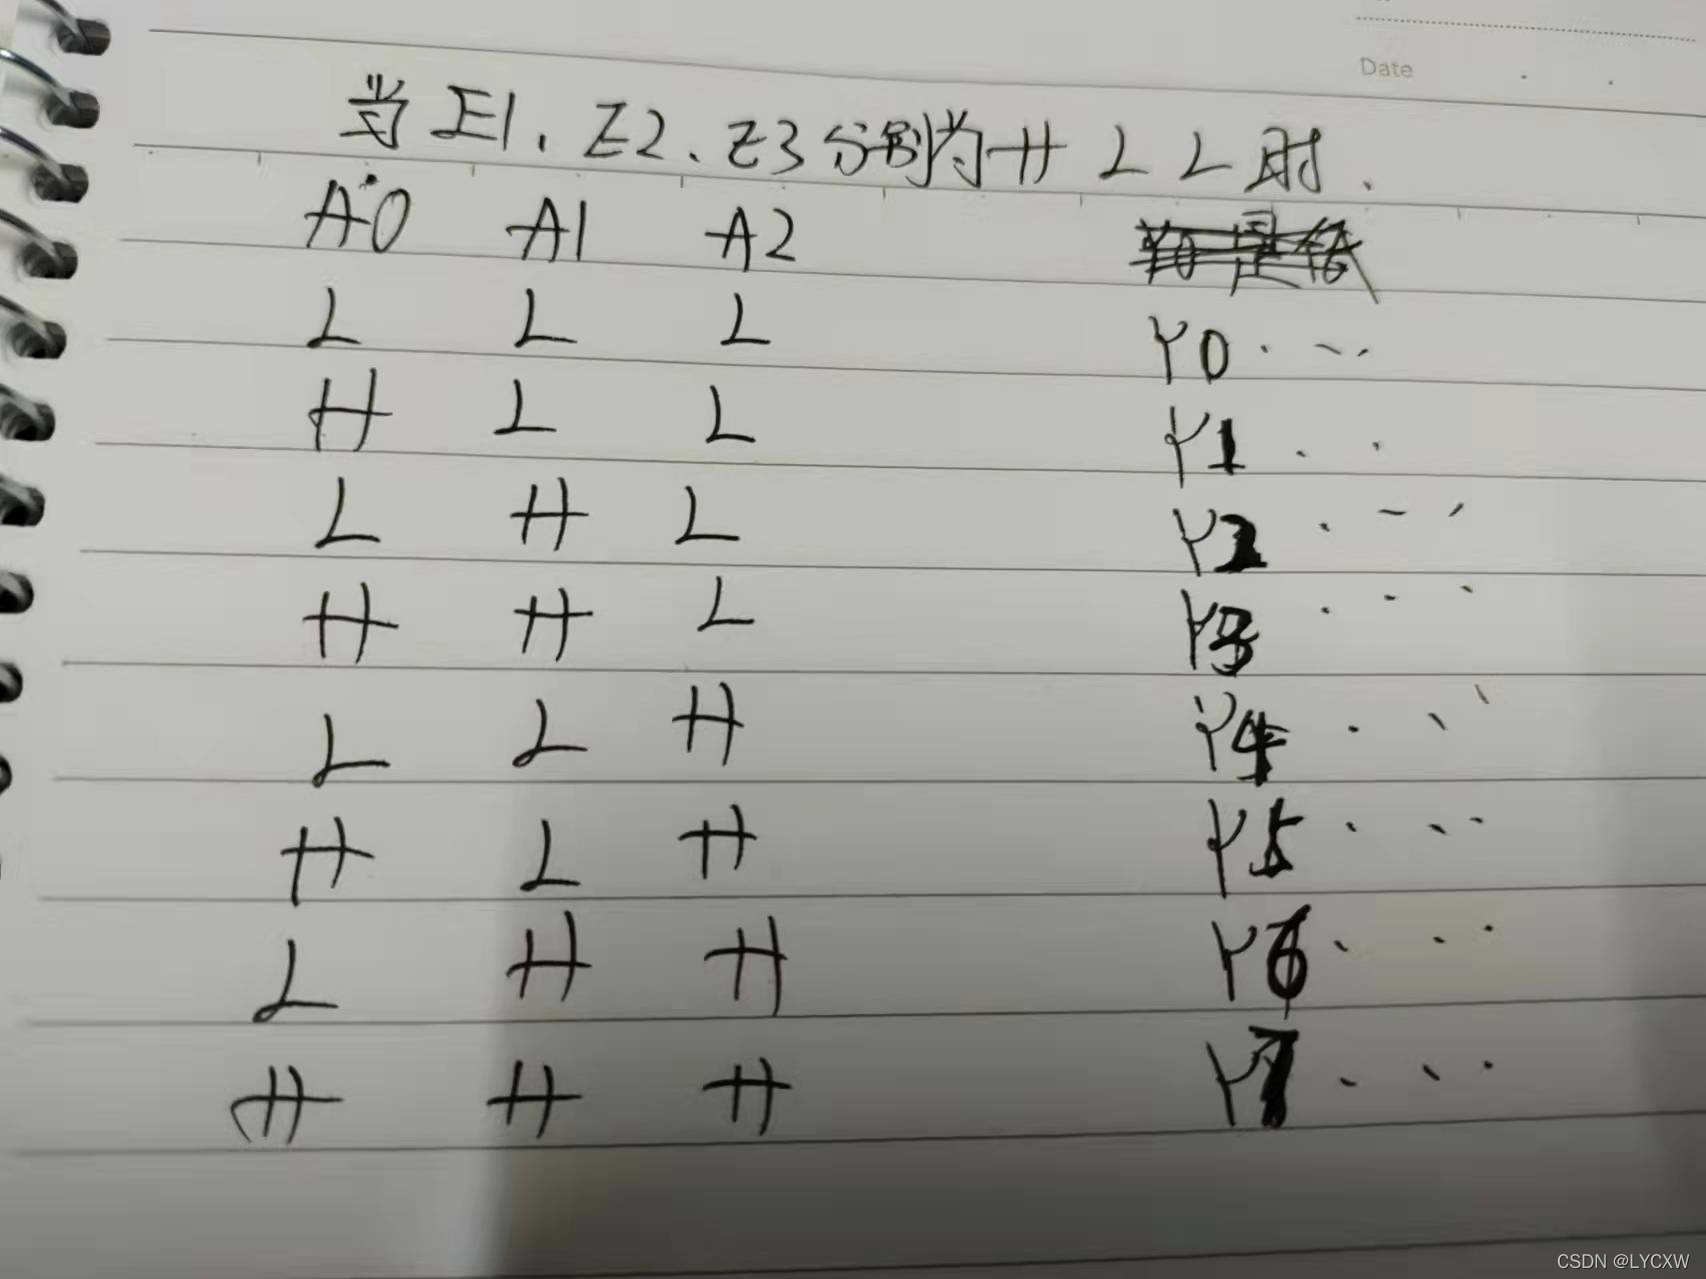 Date
当E1、E2、E3分别为H L L时.
A0 A1 A2
L L L Y0...
H L L Y1..
L H L Y2...
H H L Y3...
L L H Y4...
H L H Y5...
L H H Y6...
H H H Y7...
CSDN @LYCXW